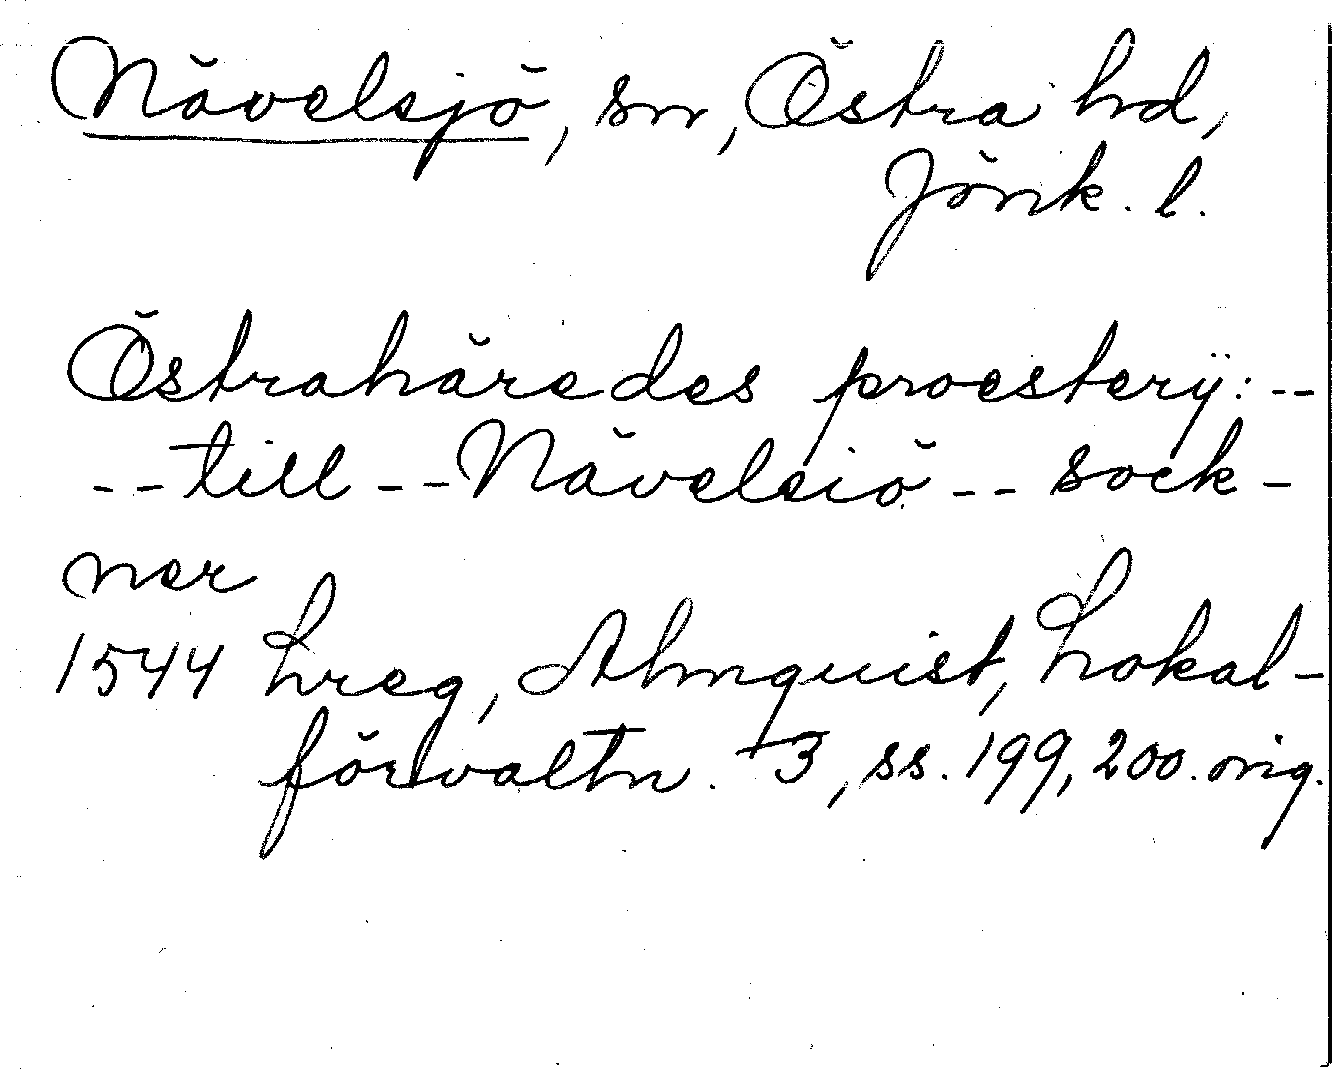 Nävelsjö, sn, Östra hd,
Jönk. l.
Östrahäredes proesterÿ: --
-- till -- Nävelsiö -- sock-
ner
1544 Lreg, Almquist, Lokal-
förvaltn. 3, ss. 199, 200. orig.